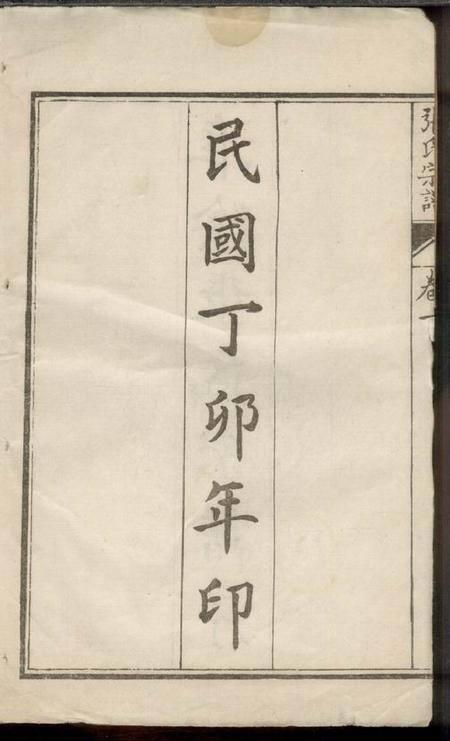 張氏宗譜
卷一
民國丁卯年印